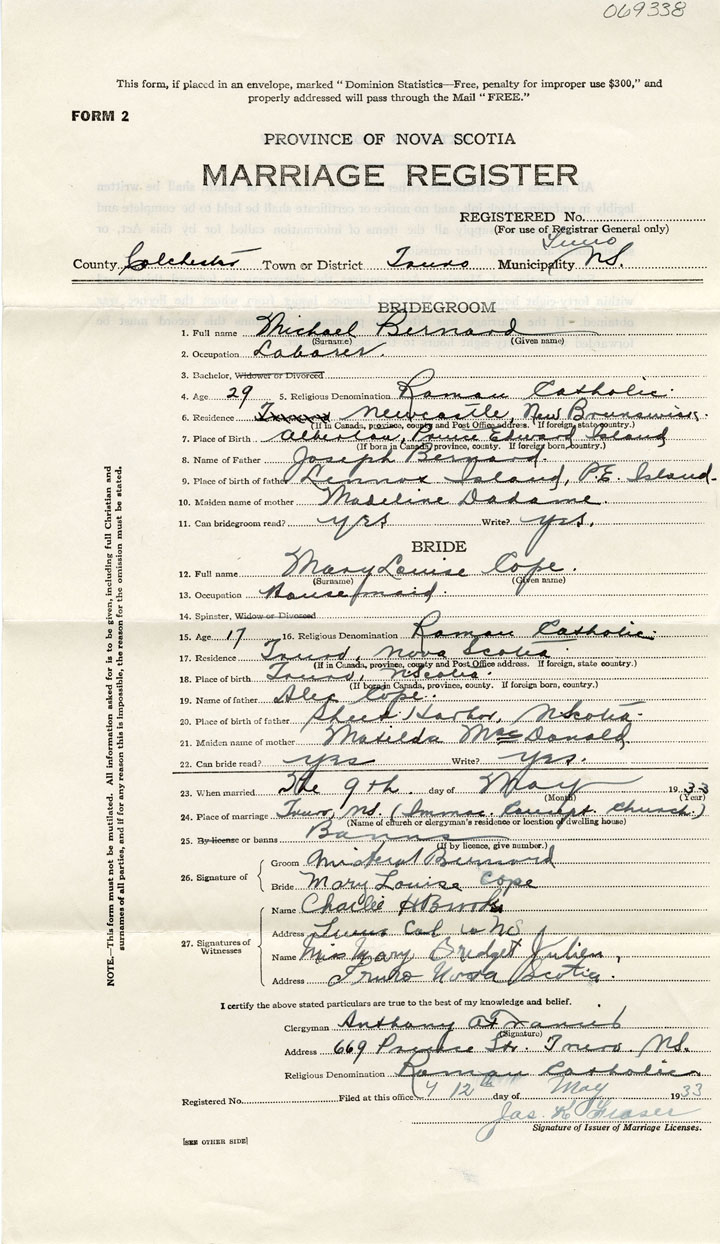 069338
This form, if placed in an envelope, marked "Dominion Statistics—Free, penalty for improper use $300," and
properly addressed will pass through the Mail "FREE."
FORM 2
PROVINCE OF NOVA SCOTIA
MARRIAGE REGISTER
REGISTERED No.
(For use of Registrar General only)
Truro
County Colchester Town or District Truro Municipality NS.
BRIDEGROOM
1. Full name Michael Bernard
(Surname) (Given name)
2. Occupation Laborer.
3. Bachelor, Widower or Divorced
4. Age 29 5. Religious Denomination Roman Catholic.
6. Residence Newcastle, New Brunswick.
(If in Canada, province, county and Post Office address. If foreign, state country.)
7. Place of Birth Alberton, Prince Edward Island
(If born in Canada, province, county. If foreign born, country.)
8. Name of Father Joseph Bernard.
9. Place of birth of father Lennox Island, P.E. Island.
10. Maiden name of mother Madeline Dadame.
11. Can bridegroom read? yes Write? yes.
BRIDE
12. Full name Mary Louise Cope.
(Surname) (Given name)
13. Occupation House maid.
14. Spinster, Widow or Divorced
15. Age 17 16. Religious Denomination Roman Catholic.
17. Residence Truro, Nova Scotia.
(If in Canada, province, county and Post Office address. If foreign, state country.)
18. Place of birth Truro, N Scotia.
(If born in Canada, province, county. If foreign born, country.)
19. Name of father Alec Cope.
20. Place of birth of father Sheet Harbor, N Scotia.
21. Maiden name of mother Matilda MacDonald
22. Can bride read? yes Write? yes.
23. When married The 9th. day of May 1933
(Month) (Year)
24. Place of marriage Truro, NS. (Immac. Church.)
(Name of church or clergyman's residence or location of dwelling house)
25. By license or banns Banns
(If by licence, give number.)
26. Signature of
Groom Michael Bernard
Bride Mary Louise Cope
27. Signatures of Witnesses
Name Charlie H Brooks
Address Truro Col co NS
Name Miss Mary Bridget Julien,
Address Truro Nova Scotia.
NOTE.—This form must not be mutilated. All information asked for is to be given, including full Christian and
surnames of all parties, and if for any reason this is impossible, the reason for the omission must be stated.
I certify the above stated particulars are true to the best of my knowledge and belief.
Clergyman Anthony
(Signature)
Address 669 Prince St. Truro NS.
Religious Denomination Roman Catholic.
Registered No. Filed at this office 12th day of May 1933
Jas. K Fraser
Signature of Issuer of Marriage Licenses.
[SEE OTHER SIDE]